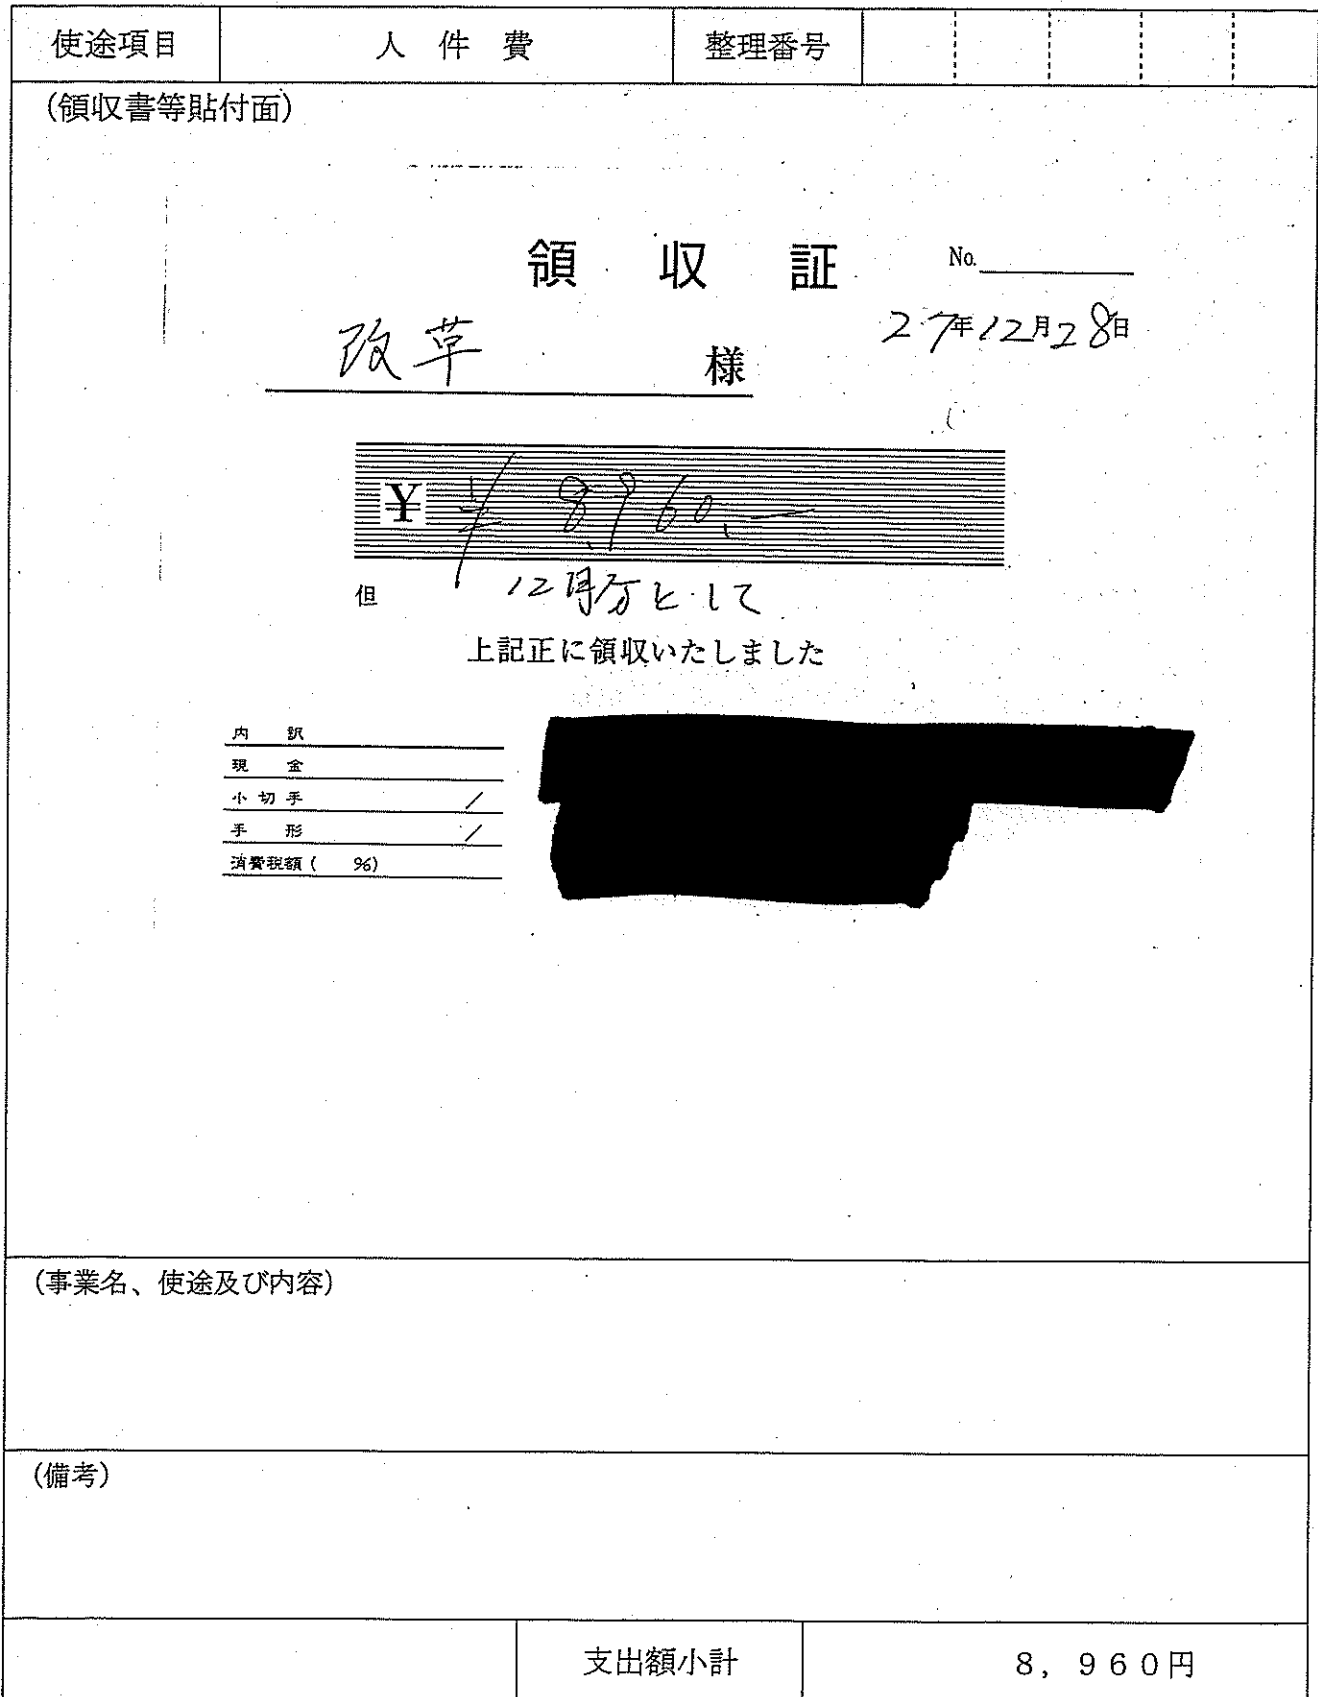 使途項目 人件費 整理番号
(領収書等貼付面)
領収証 No.
27年12月28日
改革 様
¥ ¥8,960.—
但 12月分として
上記正に領収いたしました
内訳
現金
小切手 /
手形 /
消費税額( %)
(事業名、使途及び内容)
(備考)
支出額小計 8,960円